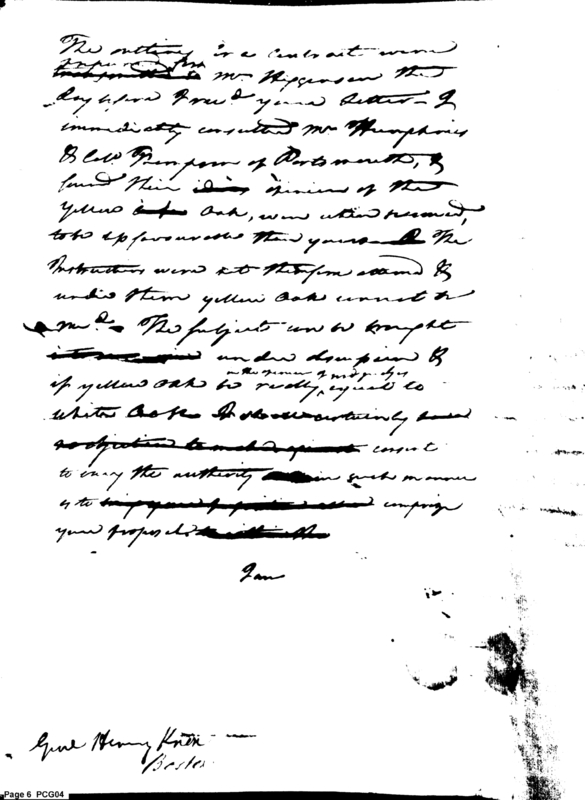 The outlines for a contract were
prepared from Mr Higginson the
day before I rec.d your Letter - I
immediately consulted Mr Humphries
& Coll. Thompson of Portsmouth, &
found their opinion of the
yellow Oak, when seasoned,
to be as favourable than yours The
Instructions were not therefore altered &
under them yellow Oak cannot be
The subject can be brought
under discussion &
if yellow Oak be really, in the opinion of good judges equal to
white Oak certainly
consent
to vary the authority in such manner
as to comprize
your proposals
I am
Genl Henry Knox
Boston
Page 6 PCG04